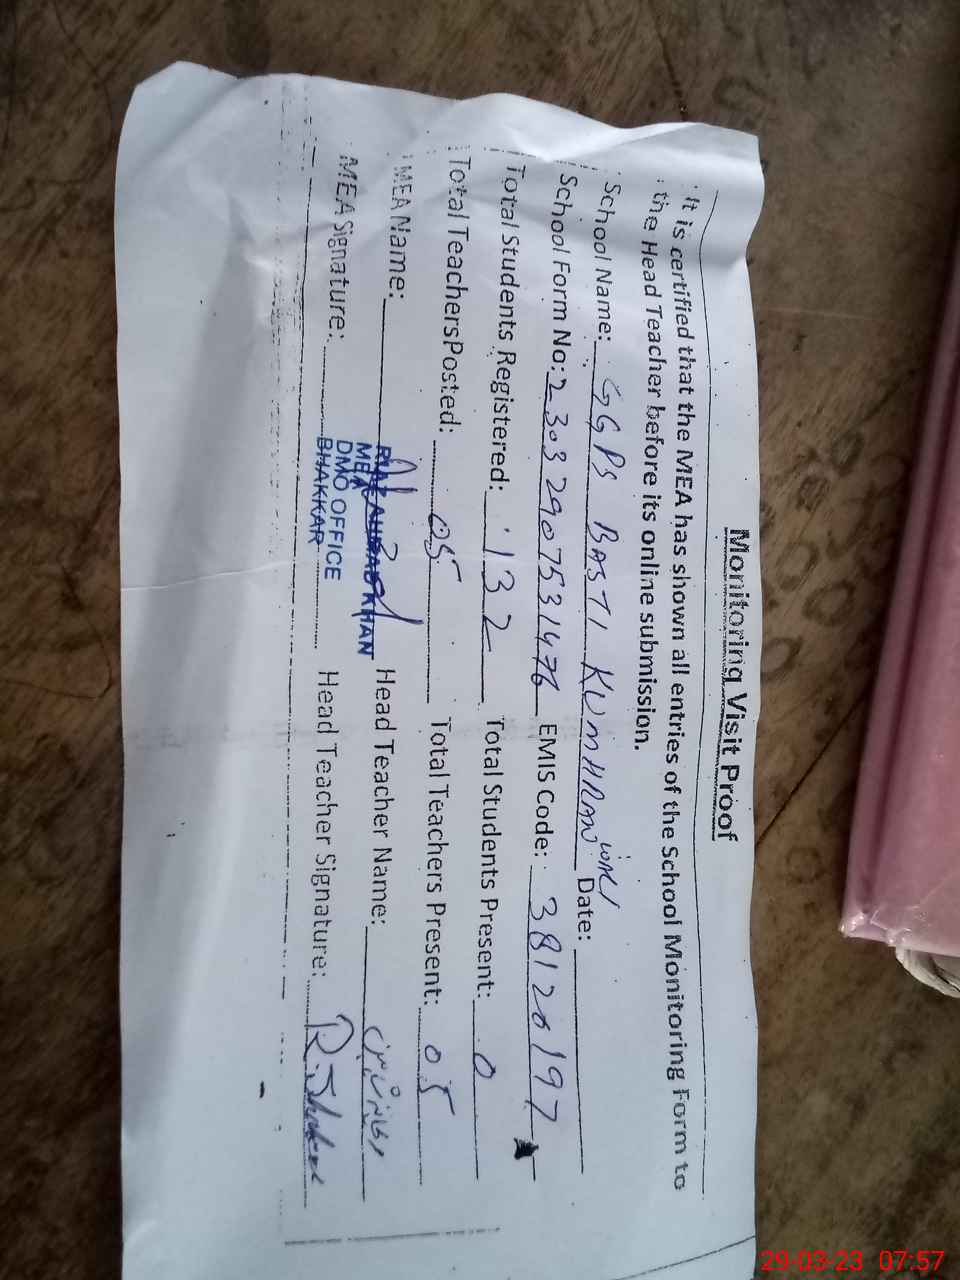 Monitoring Visit Proof
It is certified that the MEA has shown all entries of the School Monitoring Form to
the Head Teacher before its online submission.
School Name: GGPS BASTI KUMHRAN WALI Date:
School Form No: 23032907531476 EMIS Code: 38120197
Total Students Registered: 132 Total Students Present: 0
Total TeachersPosted: 05 Total Teachers Present: 05
MEA Name: Head Teacher Name:
KHAN
MEA
MEA Signature: Head Teacher Signature:
DMO OFFICE
BHAKKAR
29-03-23 07:57